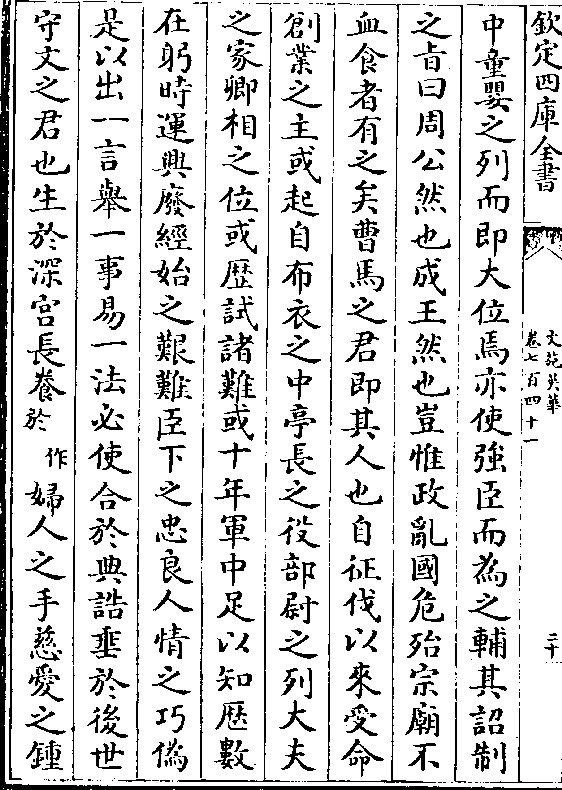 欽定四庫全書
文苑英華
卷七百四十一
二十
中童嬰之列而即大位焉亦使強臣而為之輔其詔制
之旨曰周公然也成王然也豈惟政亂國危殆宗廟不
血食者有之矣曹馬之君即其人也自征伐以來受命
創業之主或起自布衣之中亭長之役部尉之列大夫
之家卿相之位或歴試諸難或十年軍中足以知歴數
在躬時運興廢經始之艱難臣下之忠良人情之巧偽
是以出一言舉一事易一法必使合於典誥垂於後世
守文之君也生於深宮長養於作婦人之手慈愛之鍾